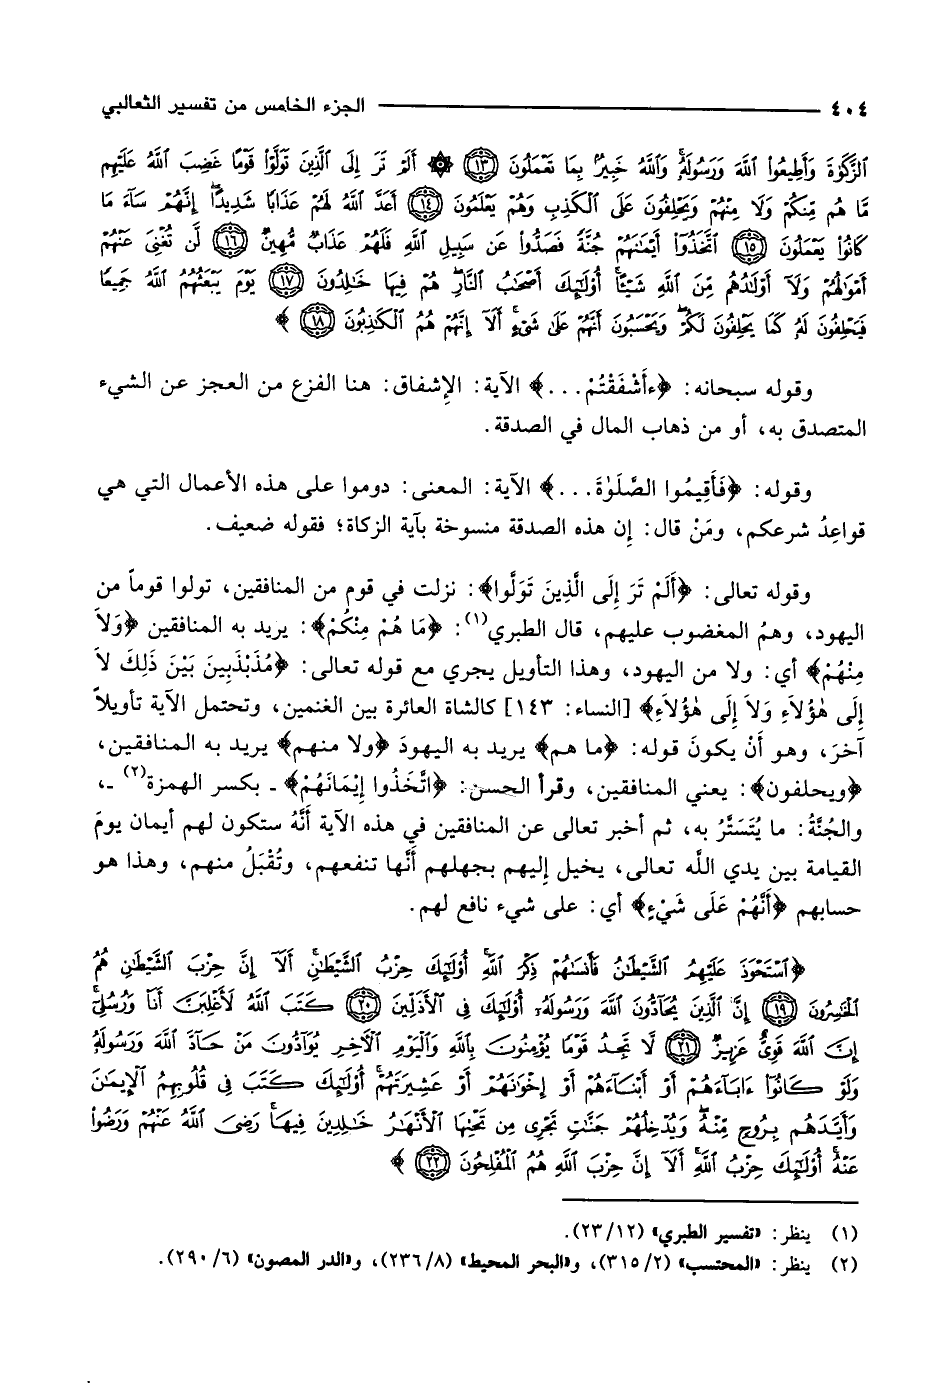 ٤٠٤ الجزء الخامس من تفسير الثعالبي
ٱلزَّكَوٰةَ وَأَطِيعُوا۟ ٱللَّهَ وَرَسُولَهُۥۚ وَٱللَّهُ خَبِيرٌۢ بِمَا تَعْمَلُونَ ﴿١٣﴾ ۞ أَلَمْ تَرَ إِلَى ٱلَّذِينَ تَوَلَّوْا۟ قَوْمًا غَضِبَ ٱللَّهُ عَلَيْهِم
مَّا هُم مِّنكُمْ وَلَا مِنْهُمْ وَيَحْلِفُونَ عَلَى ٱلْكَذِبِ وَهُمْ يَعْلَمُونَ ﴿١٤﴾ أَعَدَّ ٱللَّهُ لَهُمْ عَذَابًا شَدِيدًاۖ إِنَّهُمْ سَآءَ مَا
كَانُوا۟ يَعْمَلُونَ ﴿١٥﴾ ٱتَّخَذُوٓا۟ أَيْمَٰنَهُمْ جُنَّةً فَصَدُّوا۟ عَن سَبِيلِ ٱللَّهِ فَلَهُمْ عَذَابٌ مُّهِينٌ ﴿١٦﴾ لَّن تُغْنِىَ عَنْهُمْ
أَمْوَٰلُهُمْ وَلَآ أَوْلَٰدُهُم مِّنَ ٱللَّهِ شَيْـًٔاۚ أُو۟لَٰٓئِكَ أَصْحَٰبُ ٱلنَّارِۖ هُمْ فِيهَا خَٰلِدُونَ ﴿١٧﴾ يَوْمَ يَبْعَثُهُمُ ٱللَّهُ جَمِيعًا
فَيَحْلِفُونَ لَهُۥ كَمَا يَحْلِفُونَ لَكُمْۖ وَيَحْسَبُونَ أَنَّهُمْ عَلَىٰ شَىْءٍۚ أَلَآ إِنَّهُمْ هُمُ ٱلْكَٰذِبُونَ ﴿١٨﴾ ﴾
وقوله سبحانه: ﴿ءأَشْفَقْتُمْ...﴾ الآية: الإشفاق: هنا الفزع من العجز عن الشيء
المتصدق به، أو من ذهاب المال في الصدقة.
وقوله: ﴿فَأَقِيمُوا الصَّلَوٰةَ...﴾ الآية: المعنى: دوموا على هذه الأعمال التي هي
قواعِدُ شرعكم، ومَنْ قال: إن هذه الصدقة منسوخة بآية الزكاة؛ فقوله ضعيف.
وقوله تعالى: ﴿أَلَمْ تَرَ إِلَى الَّذِينَ تَوَلَّوا﴾: نزلت في قوم من المنافقين، تولوا قوماً من
اليهود، وهمُ المغضوب عليهم، قال الطبري(١): ﴿مَا هُمْ مِنْكُمْ﴾: يريد به المنافقين ﴿وَلاَ
مِنْهُمْ﴾ أي: ولا من اليهود، وهذا التأويل يجري مع قوله تعالى: ﴿مُذَبْذَبِينَ بَيْنَ ذَلِكَ لاَ
إِلَى هٰؤُلاَءِ وَلاَ إِلَى هٰؤُلاَءِ﴾ [النساء: ١٤٣] كالشاة العائرة بين الغنمين، وتحتمل الآية تأويلاً
آخرَ، وهو أنْ يكونَ قوله: ﴿ما هم﴾ يريد به اليهودَ ﴿ولا منهم﴾ يريد به المنافقين،
﴿ويحلفون﴾: يعني المنافقين، وقرأ الحسن: ﴿اتَّخَذُوا إِيْمَانَهُمْ﴾ ـ بكسر الهمزة(٢) ـ،
والجُنَّةُ: ما يُتَسَتَّرُ به، ثم أخبر تعالى عن المنافقين في هذه الآية أنَّهُ ستكون لهم أيمان يومَ
القيامة بين يدي اللَّه تعالى، يخيل إليهم بجهلهم أنَّها تنفعهم، وتُقْبَلُ منهم، وهذا هو
حسابهم ﴿أَنَّهُمْ عَلَى شَيْءٍ﴾ أي: على شيء نافع لهم.
﴿ٱسْتَحْوَذَ عَلَيْهِمُ ٱلشَّيْطَٰنُ فَأَنسَىٰهُمْ ذِكْرَ ٱللَّهِۚ أُو۟لَٰٓئِكَ حِزْبُ ٱلشَّيْطَٰنِۚ أَلَآ إِنَّ حِزْبَ ٱلشَّيْطَٰنِ هُمُ
ٱلْخَٰسِرُونَ ﴿١٩﴾ إِنَّ ٱلَّذِينَ يُحَآدُّونَ ٱللَّهَ وَرَسُولَهُۥٓ أُو۟لَٰٓئِكَ فِى ٱلْأَذَلِّينَ ﴿٢٠﴾ كَتَبَ ٱللَّهُ لَأَغْلِبَنَّ أَنَا۠ وَرُسُلِىٓۚ
إِنَّ ٱللَّهَ قَوِىٌّ عَزِيزٌ ﴿٢١﴾ لَّا تَجِدُ قَوْمًا يُؤْمِنُونَ بِٱللَّهِ وَٱلْيَوْمِ ٱلْءَاخِرِ يُوَآدُّونَ مَنْ حَآدَّ ٱللَّهَ وَرَسُولَهُۥ
وَلَوْ كَانُوٓا۟ ءَابَآءَهُمْ أَوْ أَبْنَآءَهُمْ أَوْ إِخْوَٰنَهُمْ أَوْ عَشِيرَتَهُمْۚ أُو۟لَٰٓئِكَ كَتَبَ فِى قُلُوبِهِمُ ٱلْإِيمَٰنَ
وَأَيَّدَهُم بِرُوحٍ مِّنْهُۖ وَيُدْخِلُهُمْ جَنَّٰتٍ تَجْرِى مِن تَحْتِهَا ٱلْأَنْهَٰرُ خَٰلِدِينَ فِيهَاۚ رَضِىَ ٱللَّهُ عَنْهُمْ وَرَضُوا۟
عَنْهُۚ أُو۟لَٰٓئِكَ حِزْبُ ٱللَّهِۚ أَلَآ إِنَّ حِزْبَ ٱللَّهِ هُمُ ٱلْمُفْلِحُونَ ﴿٢٢﴾ ﴾
(١) ينظر: «تفسير الطبري» (٢٣/١٢).
(٢) ينظر: «المحتسب» (٣١٥/٢)، و«البحر المحيط» (٢٣٦/٨)، و«الدر المصون» (٢٩٠/٦).